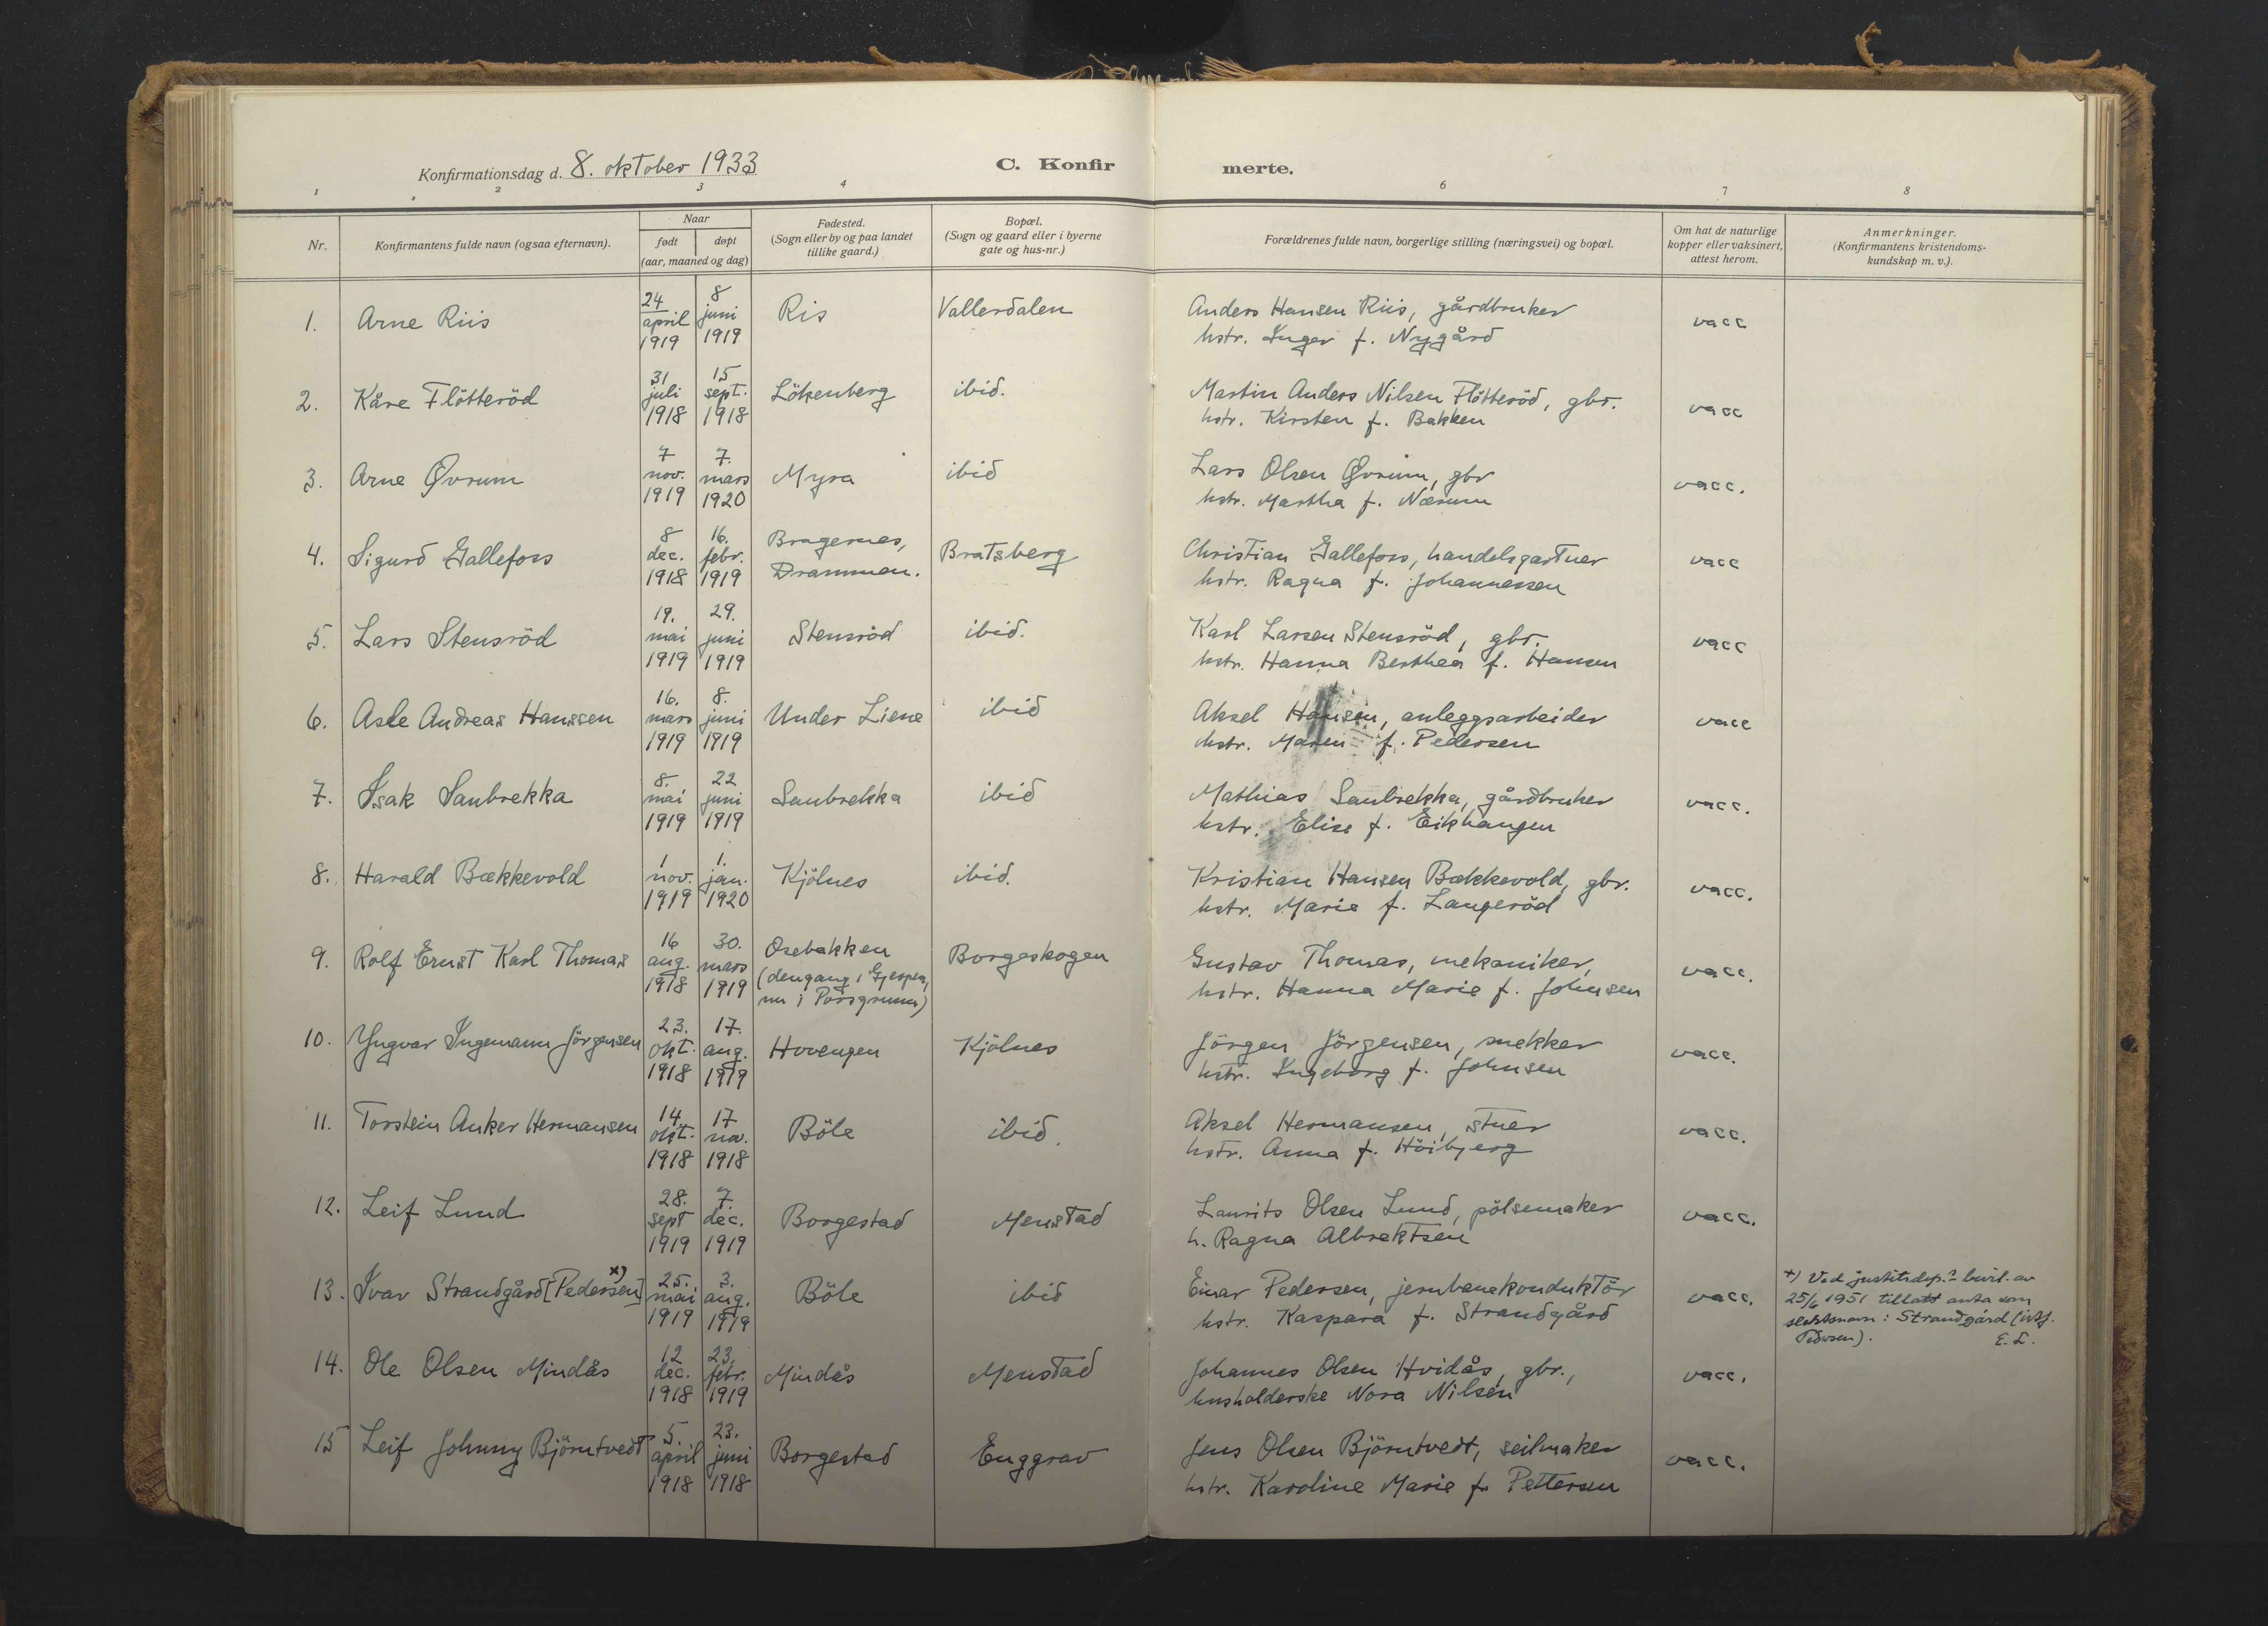 Konfirmationsdag d. 8. oktober 1933
C. Konfir
merte.
1 2 3 4 6 7 8
Nr.
Konfirmantens fulde navn (ogsaa efternavn).
Naar
født døpt
(aar, maaned og dag)
Fødested.
(Sogn eller by og paa landet
tillike gaard.)
Bopæl.
(Sogn og gaard eller i byerne
gate og hus-nr.)
Forældrenes fulde navn, borgerlige stilling (næringsvei) og bopæl.
Om hat de naturlige
kopper eller vaksinert,
attest herom.
Anmerkninger.
(Konfirmantens kristendoms-
kundskap m. v.).
1. Arne Riis
24 april 1919
8 juni 1919
Ris
Vallerdalen
Anders Hansen Riis, gårdbruker
hstr. Inger f. Nygård
vacc
2. Kåre Flötteröd
31 juli 1918
15 sept. 1918
Lökenberg
ibid.
Martin Anders Nilsen Flötteröd, gbr.
hstr. Kirsten f. Bakken
vacc
3. Arne Øvrum
7 nov. 1919
7. mars 1920
Myra
ibid
Lars Olsen Øvrum, gbr
hstr. Martha f. Nærum
vacc.
4. Sigurd Gallefoss
8 dec. 1918
16. febr. 1919
Bragernes,
Drammen.
Bratsberg
Christian Gallefoss, handelsgartner
hstr. Ragna f. Johannessen
vacc
5. Lars Stensröd
19. mai 1919
29. juni 1919
Stensröd
ibid.
Karl Larsen Stensröd, gbr.
hstr. Hanna Berthea f. Hansen
vacc
6. Asle Andreas Hanssen
16. mars 1919
8. juni 1919
Under Liene
ibid
Aksel Hansen, anleggsarbeider
hstr. Maren f. Pedersen
vacc
7. Isak Saubrekka
8. mai 1919
22 juni 1919
Saubrekka
ibid
Mathias Saubrekka, gårdbruker
hstr. Elise f. Eikhaugen
vacc.
8. Harald Bækkevold
1 nov. 1919
1. jan. 1920
Kjölnes
ibid.
Kristian Hansen Bækkevold, gbr.
hstr. Marie f. Langeröd
vacc.
9. Rolf Ernst Karl Thomas
16 aug. 1918
30. mars 1919
Osebakken
(dengang i Gjerpen,
nu i Porsgrunn)
Borgeskogen
Gustav Thomas, mekaniker,
hstr. Hanna Marie f. Johnsen
vacc.
10. Yngvar Ingemann Jörgensen
23. okt. 1918
17. aug. 1919
Hovengen
Kjölnes
Jörgen Jörgensen, snekker
hstr. Ingeborg f. Johnsen
vacc.
11. Torstein Anker Hermansen
14. okt. 1918
17 nov. 1918
Böle
ibid.
Aksel Hermansen, stuer
hstr. Anna f. Höibjerg
vacc.
12. Leif Lund
28. sept 1919
7. dec. 1919
Borgestad
Menstad
Laurits Olsen Lund, pölsemaker
h. Ragna Albrektsen
vacc.
13. Ivar Strandgård [Pedersen] x)
25. mai 1919
3. aug. 1919
Böle
ibid
Einar Pedersen, jernbanekonduktör
hstr. Kaspara f. Strandgård
vacc.
x) Ved justitsdep.s bevil. av
25/6 1951 tillatt anta som
slektsnavn: Strandgård (istf.
Pedersen). E. L.
14. Ole Olsen Mindås
12 dec. 1918
23. febr. 1919
Mindås
Menstad
Johannes Olsen Hvidås, gbr.,
husholderske Nora Nilsen
vacc.
15 Leif Johnny Björntvedt
5. april 1918
23. juni 1918
Borgestad
Enggrav
Jens Olsen Björntvedt, seilmaker
hstr. Karoline Marie f. Pettersen
vacc.